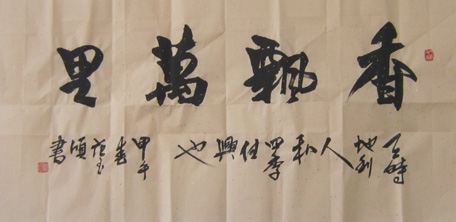 香飄萬里
天時地利人和四季佳興也
甲午春
書